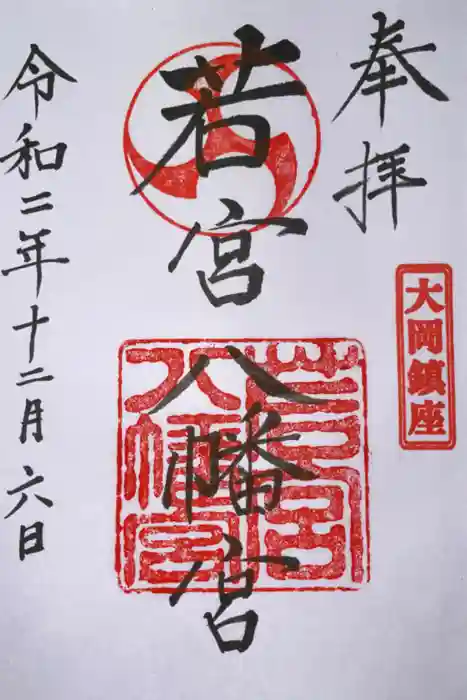 奉拝
大岡鎮座
若宮八幡宮
若宮八幡宮
令和二年十二月六日